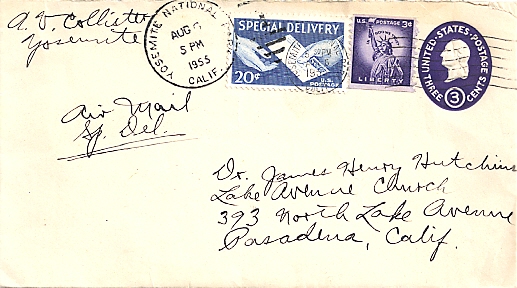 A. V. Collister
Yosemite
YOSEMITE NATIONAL PARK
AUG 6
5 PM
1955
CALIF.
SPECIAL DELIVERY
20¢
U.S. POSTAGE
U.S. POSTAGE 3¢
LIBERTY
UNITED STATES POSTAGE
THREE 3 CENTS
Air Mail
Sp. Del.
Dr. James Henry Hutchins
Lake Avenue Church
393 North Lake Avenue
Pasadena, Calif.